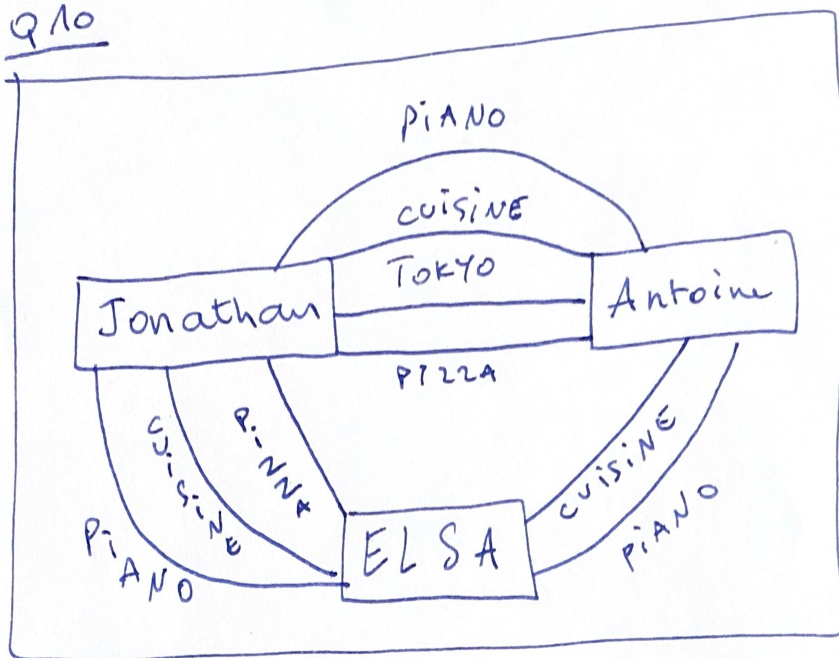 Q10
PiANO
CUiSiNE
TOKYO
Jonathan
Antoine
PIZZA
PiANO
CUiSiNE
PiNNA
ELSA
CUiSiNE
PiANO